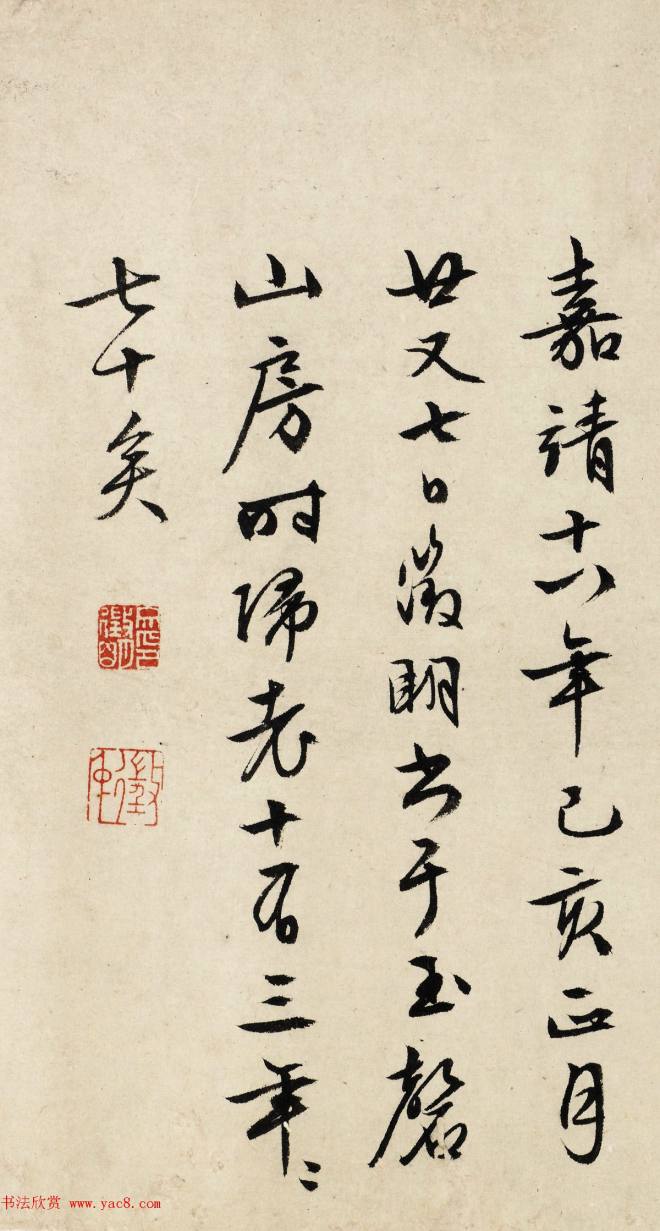 嘉靖十八年己亥正月
廿又七日徵明書于玉磬
山房時歸老十有三年年
七十矣
書法欣赏 www.yac8.com